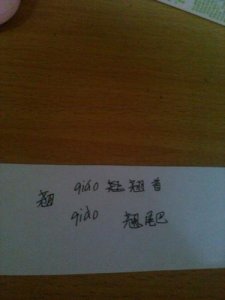 qiáo 翘首
翘
qiào 翘尾巴